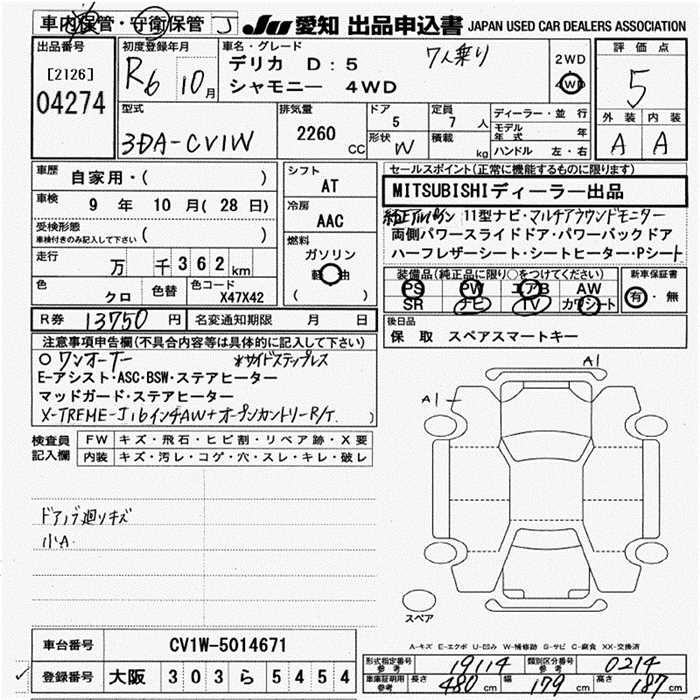 車内保管・守衛保管 J
JU 愛知 出品申込書 JAPAN USED CAR DEALERS ASSOCIATION
出品番号
[2126]
04274
初度登録年月
R6 10月
車名・グレード
7人乗り
デリカ D:5
シャモニー 4WD
2WD
4WD
評価点
5
外装 内装
A A
型式
3DA-CV1W
排気量
2260
CC
ドア
5
定員
7 人
形状
W
積載
kg
ディーラー・並行
モデル年式 年
ハンドル 左・右
車歴
自家用・( )
車検
9 年 10 月( 28 日)
受検形態
車検付きのみ記入して下さい ( )
走行
万 千362km
色
クロ
色替
色コード
X47X42
シフト
AT
冷房
AAC
燃料
ガソリン
軽油
( )
セールスポイント(正常に機能するものに限ります)
MITSUBISHIディーラー出品
11型ナビ・マルチアラウンドモニター
両側パワースライドドア・パワーバックドア
ハーフレザーシート・シートヒーター・Pシート
装備品(純正品に限り○をつけてください)
PS PW エアB AW
SR ナビ TV カワシート
新車保証書
有・無
R券 13750 円 名変通知期限 月 日
後日品
保 取 スペアスマートキー
注意事項申告欄(不具合内容等は具体的に記入して下さい)
○ワンオーナー *サイドステップレス
E-アシスト・ASC・BSW・ステアヒーター
マッドガード・ステアヒーター
X-TREME-J16インチAW+オープンカントリーR/T. )
検査員
記入欄
FW キズ・飛石・ヒビ割・リペア跡・X要
内装 キズ・汚レ・コゲ・穴・スレ・キレ・破レ
ドアノブ廻りキズ
小A
A1
A1
スペア
A-キズ E-エクボ U-凹み W-補修跡 S-サビ C-腐食 XX-交換済
車台番号 CV1W-5014671
登録番号 大阪 303 ら 5454
形式指定番号
参考 19114
類別区分番号
参考 0214
車庫証明用
参考 長さ 480 cm 幅 179 cm 高さ 187 cm